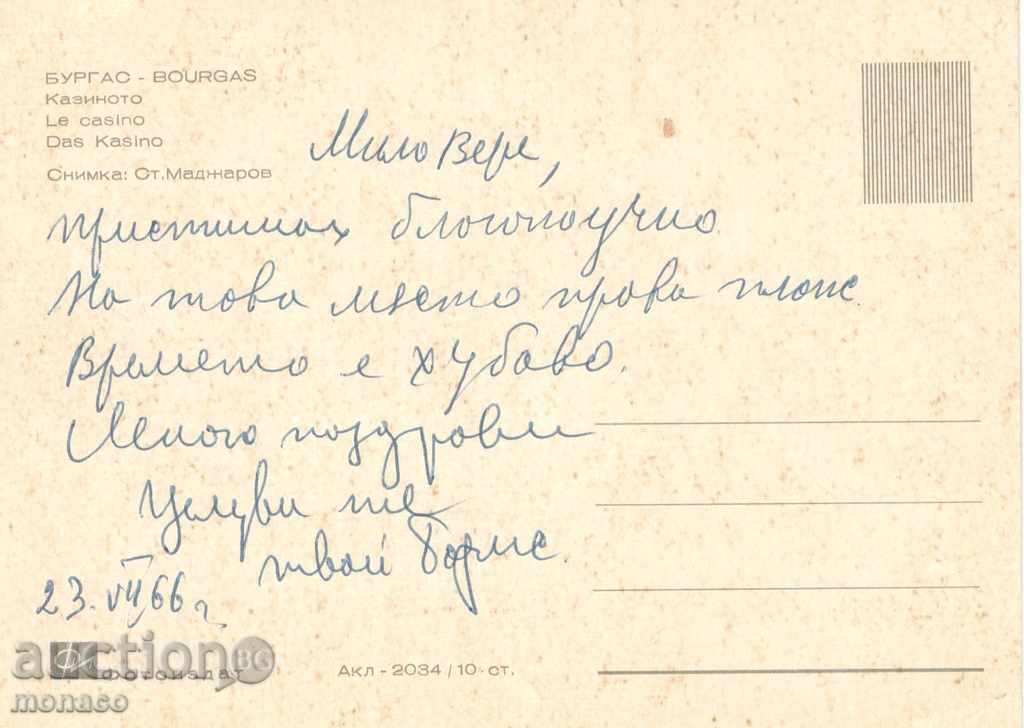 БУРГАС - BOURGAS
Казиното
Le casino
Das Kasino
Снимка: Ст. Маджаров
Мила Вере,
пристигнах благополучно.
На това място прова плаж.
Времето е хубаво.
Много поздрави
Целува те
твой Борис.
23. VII 66 г
Фотоиздат
Акл - 2034 / 10 ст.
auction BG
monaco